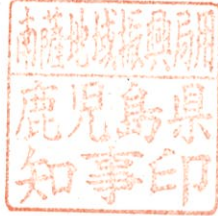 南薩地域振興局用
鹿児島県
知事印